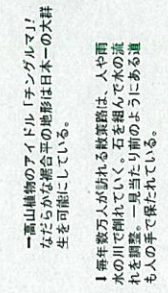 ━高山植物のアイドル「チングルマ」！
なだらかな裾合平の地形は日本一の大群
生を可能にしている。
┃毎年数万人が訪れる散策路は、人や雨
水の川で削れていく。石を組んで水の流
れを調整。一見当たり前のようにある道
も人の手で保たれている。